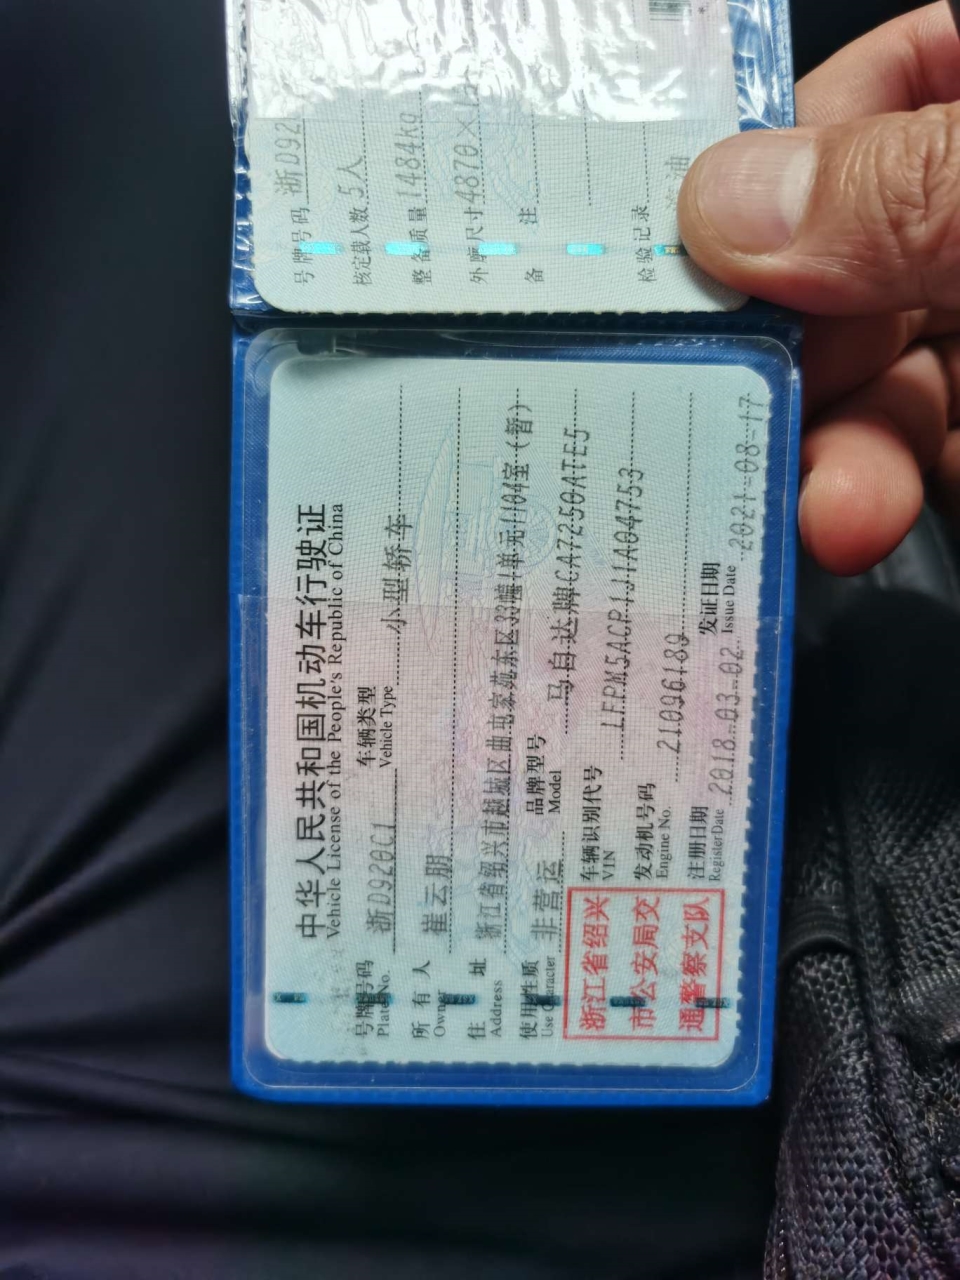 中华人民共和国机动车行驶证
Vehicle License of the People's Republic of China
号牌号码 浙D920C1 车辆类型 小型轿车
Plate No. Vehicle Type
所有人 崔云朋
Owner
住址 浙江省绍兴市越城区曲屯家苑东区33幢1单元1104室(暂)
Address
使用性质 非营运 品牌型号 马自达牌CA7250ATE5
Use Character Model
浙江省绍兴
市公安局交
通警察支队
车辆识别代号 LFPM5ACP1J1A04753
VIN
发动机号码 21096189
Engine No.
注册日期 2018-03-02 发证日期 2021-08-17
Register Date Issue Date
号牌号码 浙D92
核定载人数 5人
整备质量 1484kg
外廓尺寸 4870×
备注
检验记录
油